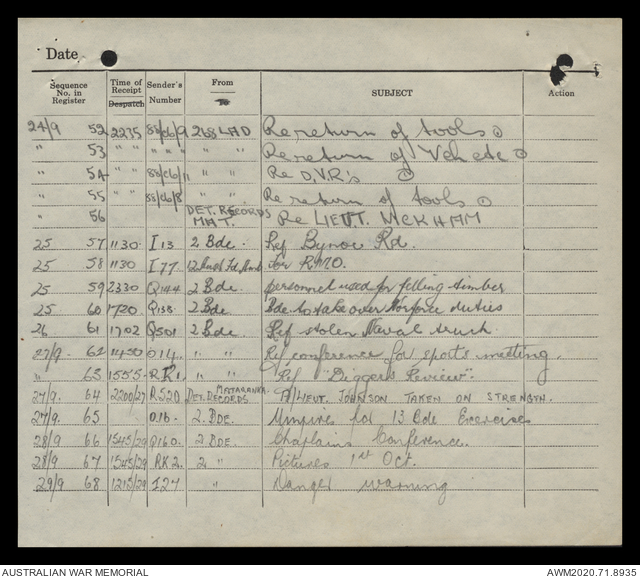 Date
Sequence No. in Register Time of Receipt Despatch Sender's Number From To SUBJECT Action
24/9 52 2235 88/d6/9 268 LAD Re return of tools
" 53 " " " " " " " Re return of Veh etc
" 54 " " 88/d6/11 " " Re D.V.R's
" 55 " " 88/d6/8 " " Re return of tools
" 56 DET. RECORDS MAT. Re LIEUT. WICKHAM
25 57 1130 I 13 2 Bde. Ref Bynoe Rd.
25 58 1130 I 77 12 Aust Fd. Amb For RMO.
25 59 2330 Q144 2 Bde. personnel used for felling timber
25 60 1720 Q158 2 Bde. Bde. to take over Norforce duties
26 61 1702 Q501 2 Bde. Ref stolen Naval truck.
27/9. 62 1430 014 " " Ref conference for sports meeting.
" 63 1555 RK1 " " Ref "Diggers Review".
27/9. 64 2200/27 R520 DET. RECORDS MATARANKA A/LIEUT. JOHNSON TAKEN ON STRENGTH.
27/9. 65 016 2. BDE. Umpires for 13 Bde Exercises
28/9 66 1545/29 Q160. 2 BDE. Chaplains Conference.
28/9 67 1545/29 RK2. 2 " Pictures 1st Oct.
29/9 68 1215/29 I27 " Danger warning
AUSTRALIAN WAR MEMORIAL AWM2020.71.8935